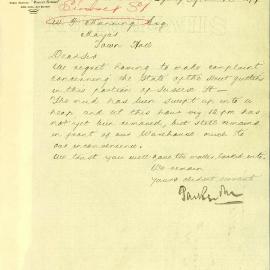 Sussex St
W. P. Manning Esq
Mayor
Town Hall
Dear Sir
We regret having to make complaint
concerning the State of the Street gutter
in this portion of Sussex St —
The mud has been swept up into a
heap and at this hour 12 pm has
not yet been removed, but still remained
in front of our Warehouse much to
our inconvenience.
We trust you will have the matter looked into.
We remain
Yours obedient servants